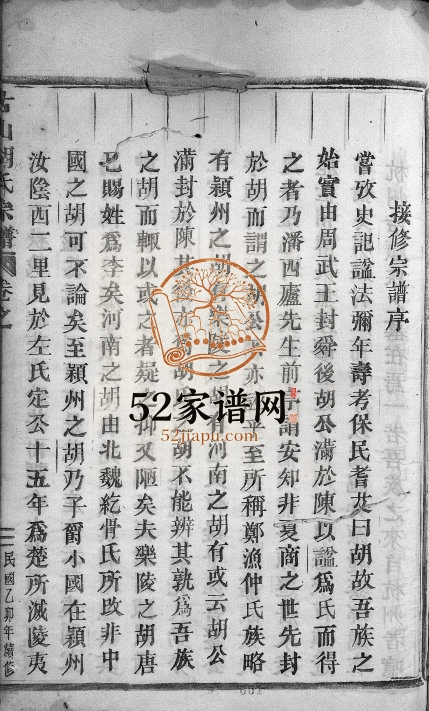 接修宗譜序
嘗攷史記諡法彌年壽考保民耆艾曰胡故吾族之
始實由周武王封舜後胡公滿於陳以諡爲氏而得
之者乃潘西廬先生前序謂安知非夏商之世先封
於胡而謂之胡公亦乎至所稱鄭漁仲氏族略
有潁州之胡有樂陵之胡有河南之胡有或云胡公
滿封於陳其後亦爲胡之胡不能辨其孰爲吾族
之胡而輒以或之者疑抑又陋矣夫樂陵之胡唐
已賜姓爲李矣河南之胡由北魏紇骨氏所改非中
國之胡可不論矣至潁州之胡乃子爵小國在潁州
汝陰西二里見於左氏定公十五年爲楚所滅陵夷
山胡氏宗譜
卷之
民國乙卯年續修
52家谱网
52jiapu.com
001